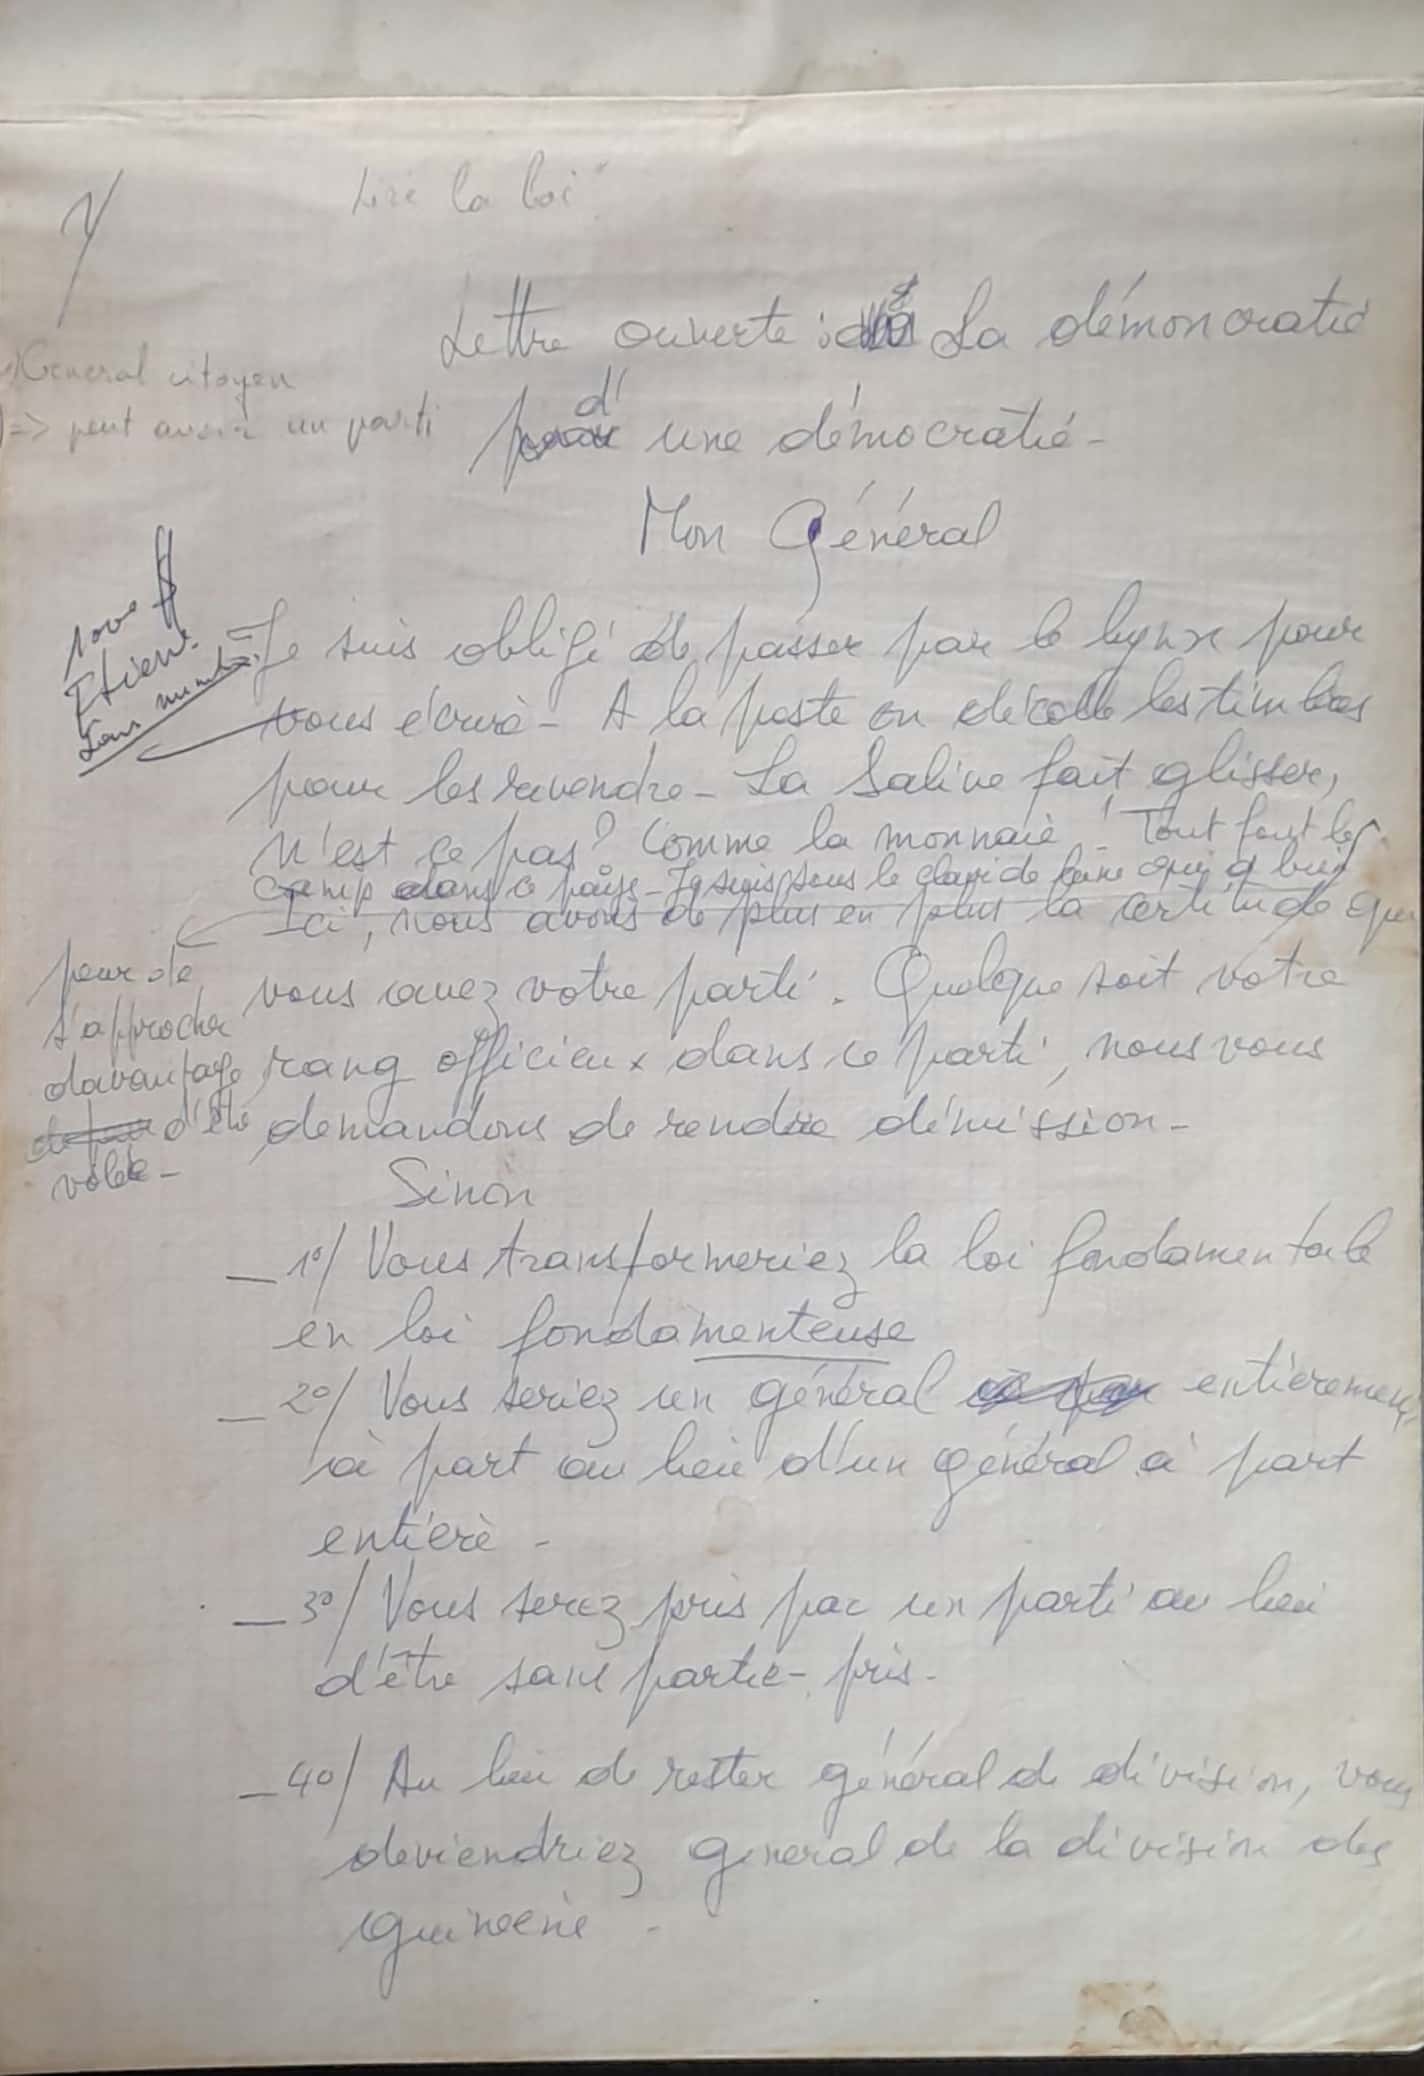 Lire la loi
Lettre ouverte : La démoncratie
d'
une démocratie -
General citoyen
=> peut avoir un parti
Mon Général
Je suis obligé de passer par le lynx pour
vous écrire - A la poste on décolle les timbres
pour les revendre - La Salive fait glisser,
n'est ce pas? Comme la monnaie ! Tout fout le
camp dans ce pays - Je suis sous le clavi de
Ici, nous avons de plus en plus la certitude que
vous avez votre parti. Quelque soit votre
rang officieux dans ce parti, nous vous
demandons de rendre démission -
peur de
s'approcher
davantage
d'être
volée -
Sinon
_ 1°/ Vous transformeriez la loi fondamentale
en loi fondamenteuse
_ 2°/ Vous seriez un général entièrement
à part au lieu d'un général à part
entière -
_ 3°/ Vous serez pris par un parti au lieu
d'être sans partie-pris -
_ 4°/ Au lieu de rester général de division, vous
deviendriez general de la division des